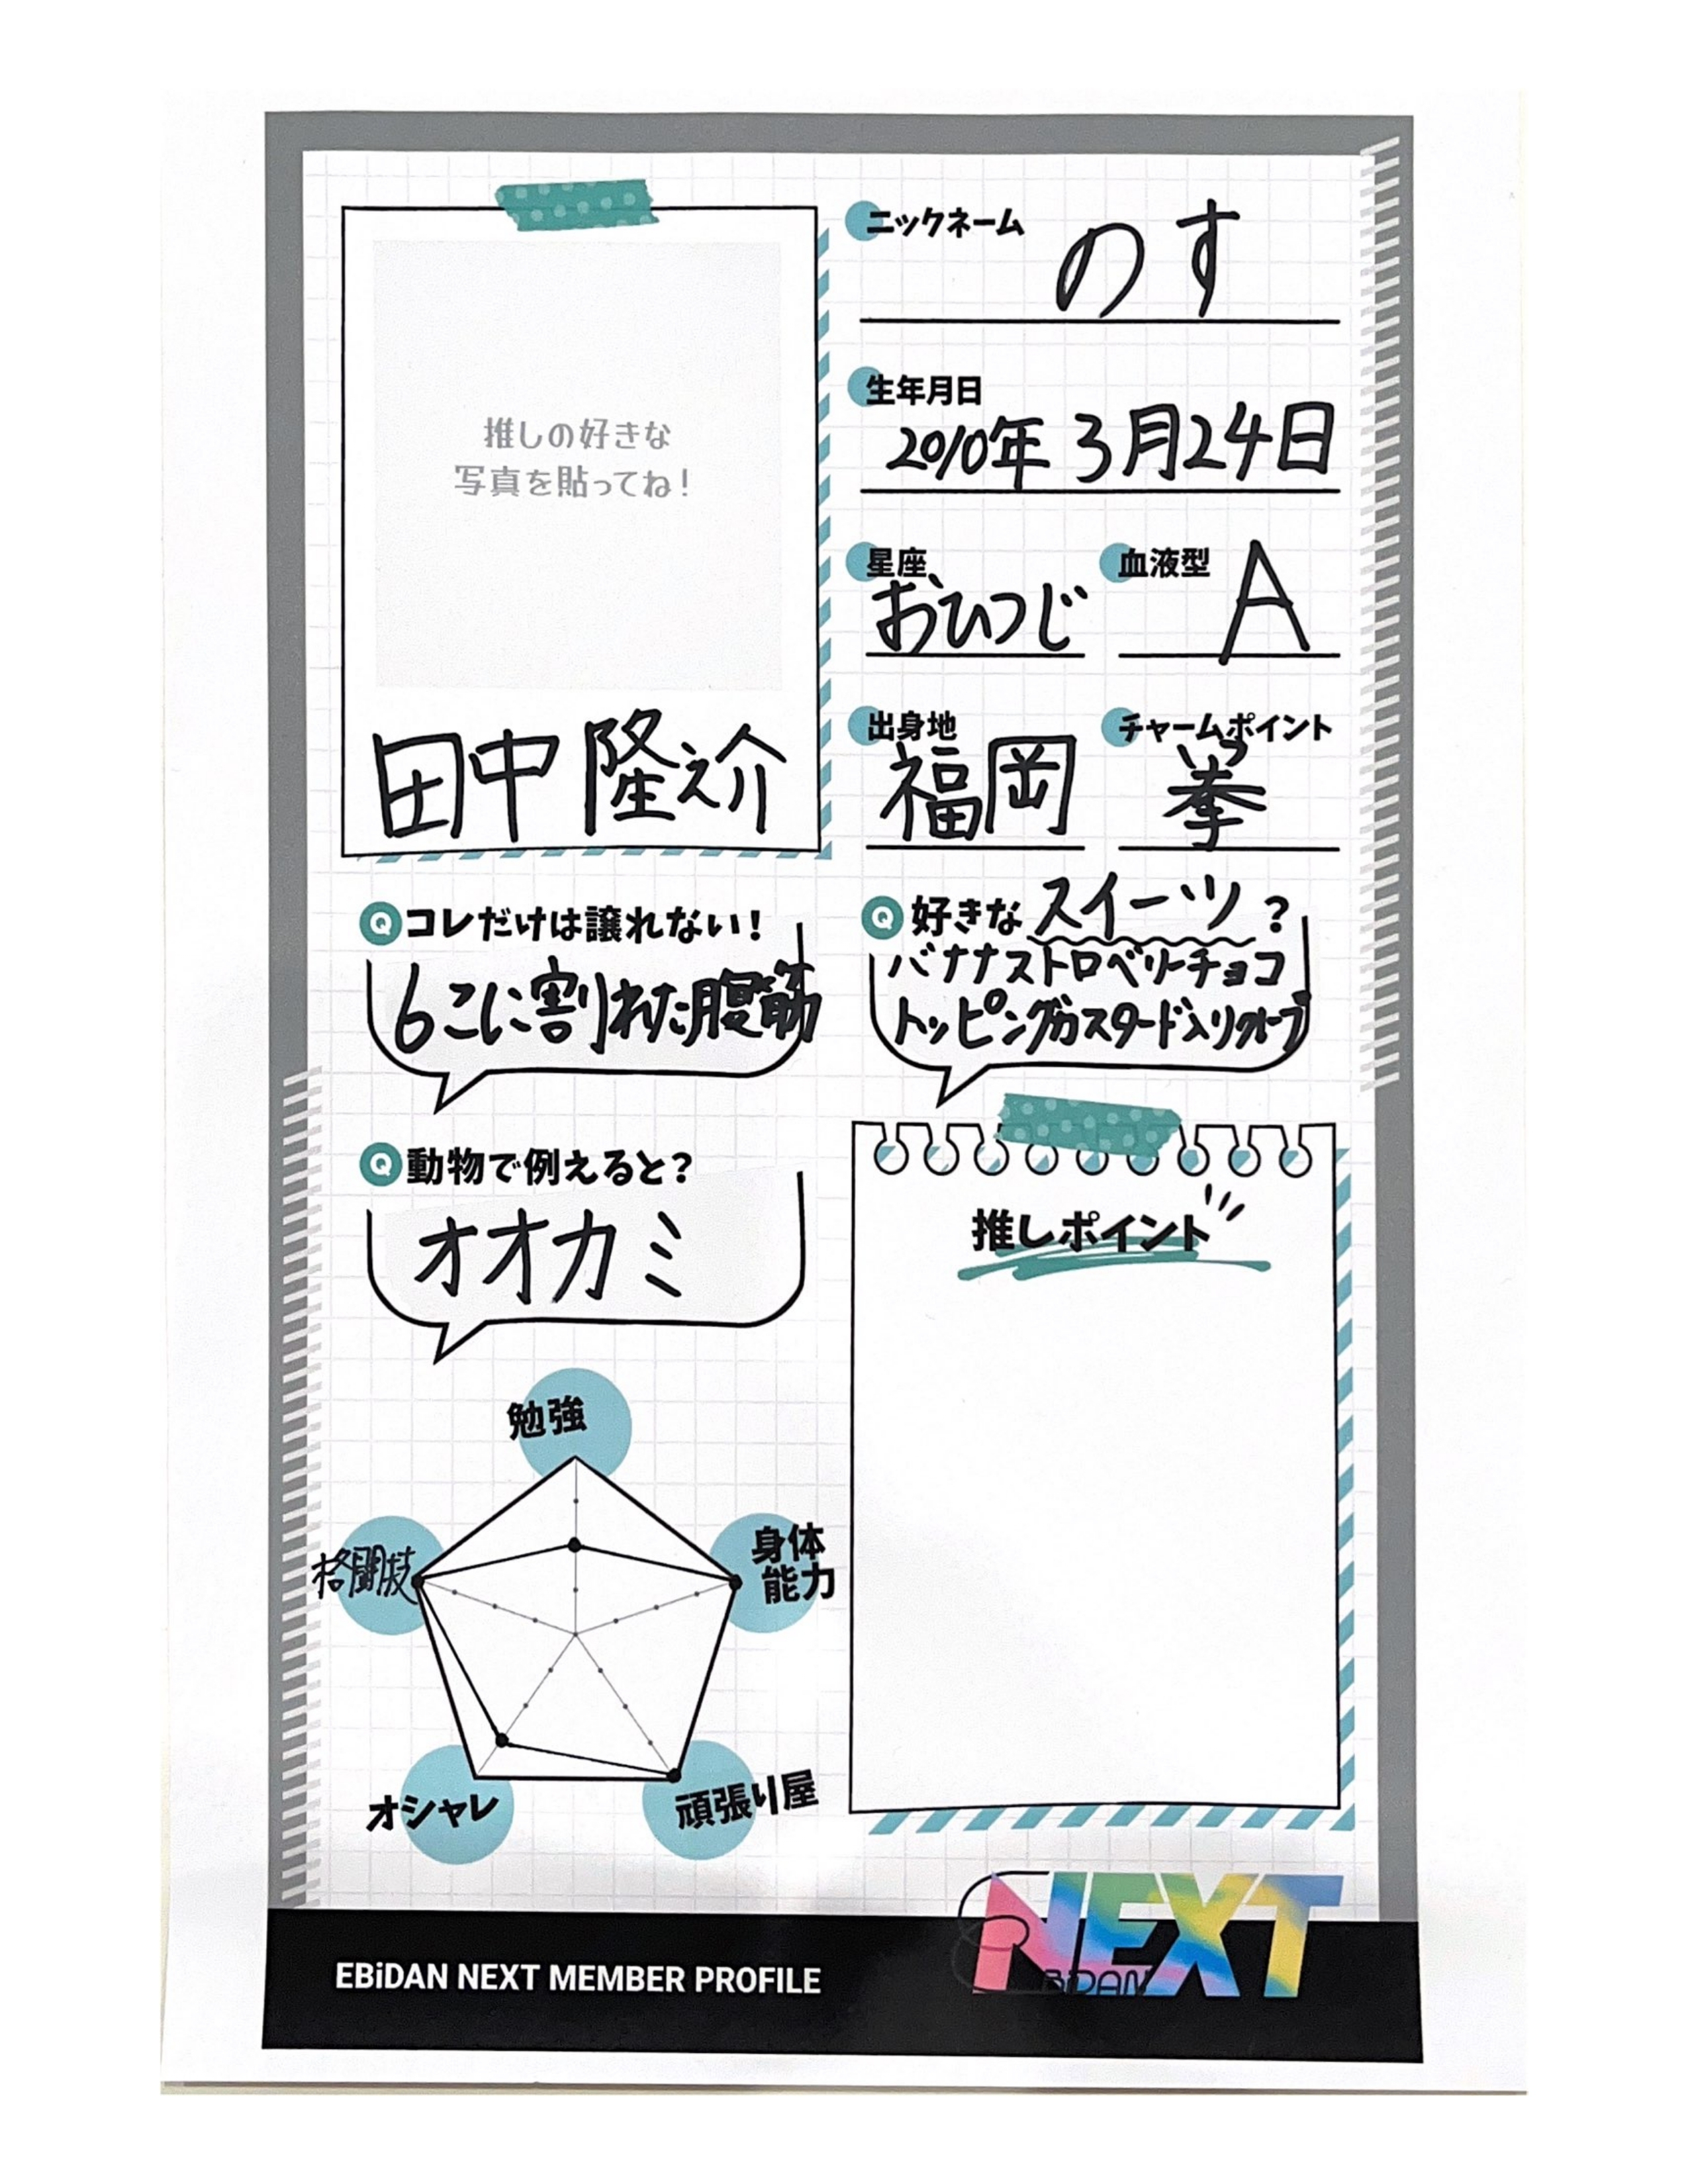 推しの好きな
写真を貼ってね！
田中隆之介
ニックネーム
のす
生年月日
2010年 3月24日
星座
おひつじ
血液型
A
出身地
福岡
チャームポイント
拳
Q コレだけは譲れない！
6こに割れた腹筋
Q 好きなスイーツ？
バナナストロベリーチョコ
トッピングカスタード入りクレープ
Q 動物で例えると？
オオカミ
推しポイント
勉強
身体
能力
頑張り屋
オシャレ
格闘技
EBiDAN NEXT MEMBER PROFILE
NEXT
EBiDAN